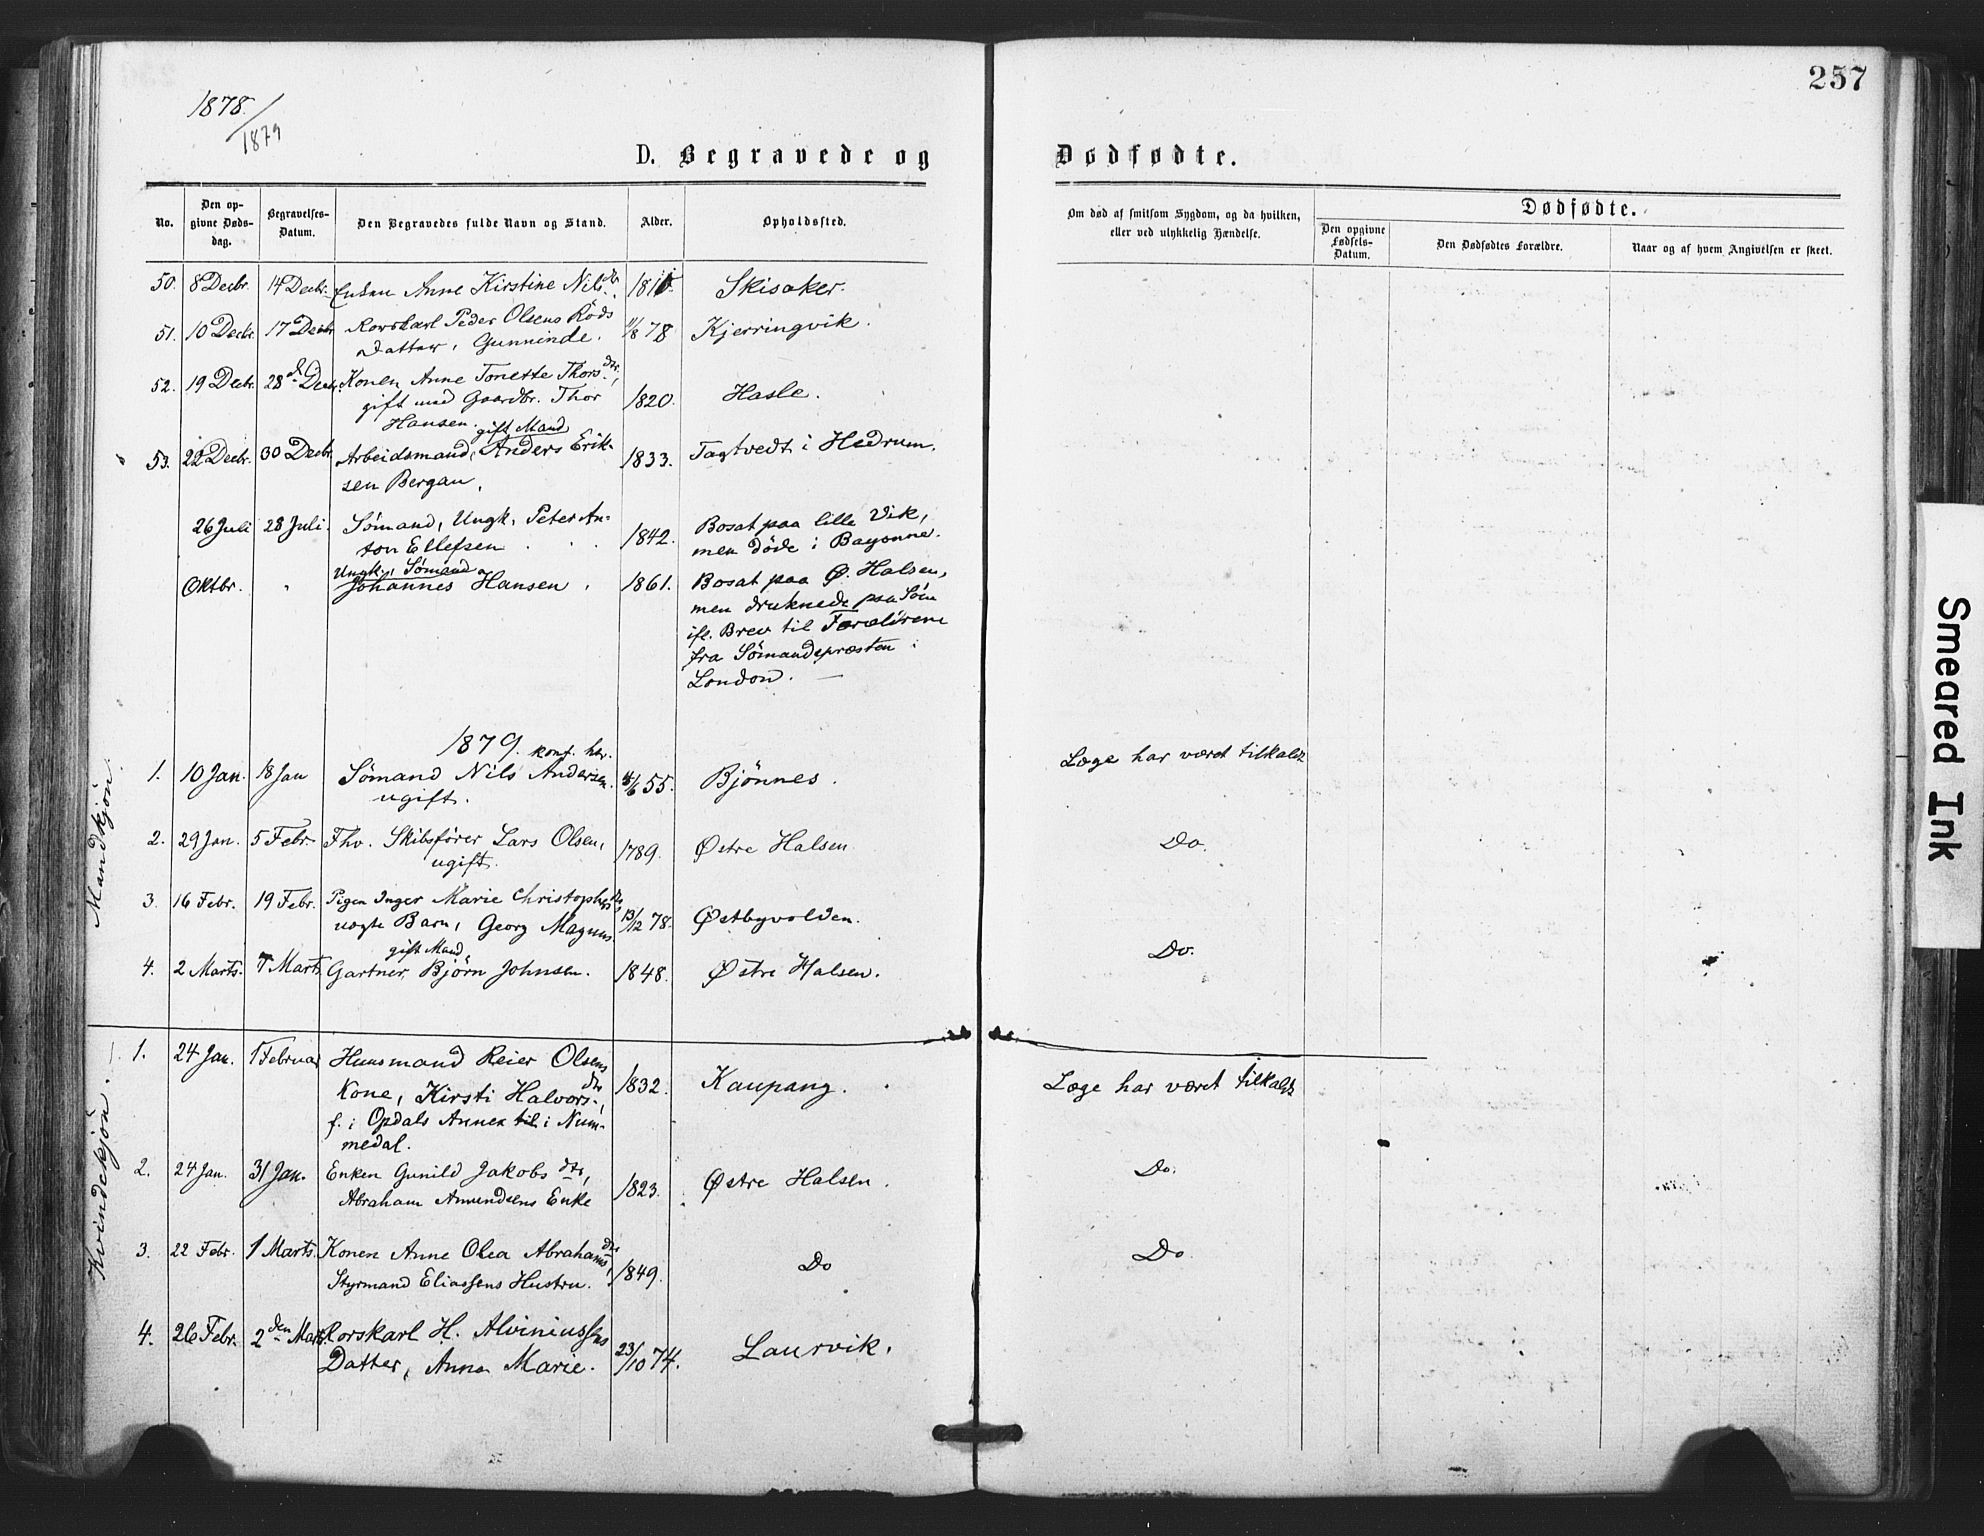 257
1878/1879
D. Begravede og Dødfødte.
No.
Den opgivne Dødsdag.
Begravelses-Datum.
Den Begravedes fulde Navn og Stand.
Alder.
Opholdssted.
Om død af smitsom Sygdom, og da hvilken, eller ved ulykkelig Hændelse.
Dødfødte.
Den opgivne Fødsels-Datum.
Den Dødfødtes Forældre.
Naar og af hvem Angivelsen er skeet.
50. 8 Decbr. 14 Decbr. Enken Anne Kirstine Nilsdtr. Skisaker.
51. 10 Decbr. 17 Decbr. Rorskarl Peder Olsens Röds 11/8 78 Kjerringvik.
Datter, Gunninde.
52. 19 Decbr. 28de Decbr. Konen Anne Tonette Thorsdtr, 1820. Hasle.
gift med Gaardbr. Thor
Hansen.
gift Mand
53. 22 Decbr. 30 Decbr. Arbeidsmand, Anders Erik- 1833. Tagtvedt i Hedrum.
sen Bergan.
26 Juli 28 Juli. Sömand, Ungk. Peter An- 1842. Bosat paa lille Vik,
ton Ellefsen men döde i Bayonne.
Ungk., Sömand
Oktbr. " Johannes Hansen, 1861. Bosat paa Ø. Halsen,
men druknede paa Söen
ifl. Brev til Forældrene
fra Sömandspræsten i
London.
1879.
Mandkjön.
konf. her.
1. 10 Jan. 18 Jan Sömand Nils Andersen. 55. Bjönnes. Læge har været tilkaldt
ugift.
2. 29 Jan. 5 Febr. Fhv. Skibsförer, Lars Olsen, 1789. Østre Halsen. Do.
ugift.
3. 16 Febr. 19 Febr. Pigen Inger Marie Christophersdtr 13/12 78. Østbyvolden.
uægte Barn, Georg Magnus.
gift Mand
4. 2 Marts. 7 Marts. Gartner, Bjørn Johnsen. 1848. Østre Halsen. Do.
Kvindekjön.
1. 24 Jan. 1 Februar Huusmand Reier Olsens 1832. Kaupang. Læge har været tilkaldt
Kone, Kirsti Halvorsdtr,
f. i Opdals Annex til i Num-
medal.
2. 24 Jan. 31 Jan. Enken Gunild Jakobsdtr, 1823. Østre Halsen. Do.
Abraham Amundsens Enke
3. 22 Febr. 1 Marts. Konen Anne Olea Abrahamsdtr, 1849. Do Do
Styrmand Eliassens Hustru.
4. 26 Febr. 2den Marts. Rorskarl H. Alviniussens 23/10 74. Laurvik.
Datter, Anna Marie.
Smeared Ink